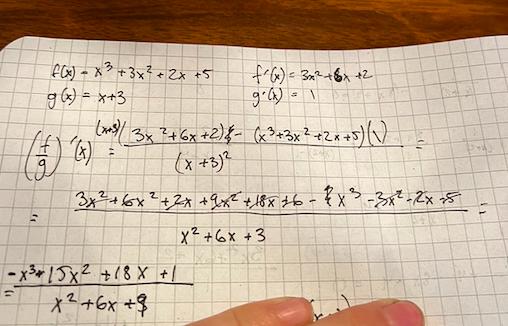 f(x) = x³ + 3x² + 2x + 5 f'(x) = 3x² + 6x + 2
g(x) = x+3 g'(x) = 1
(f/g)'(x) = (x+3)(3x² + 6x + 2) - (x³ + 3x² + 2x + 5)(1) =
(x+3)²
= 3x² + 6x² + 2x + 9x² + 18x + 6 - x³ - 3x² - 2x - 5 =
x² + 6x + 3
= -x³ + 15x² + 18x + 1
x² + 6x + 9